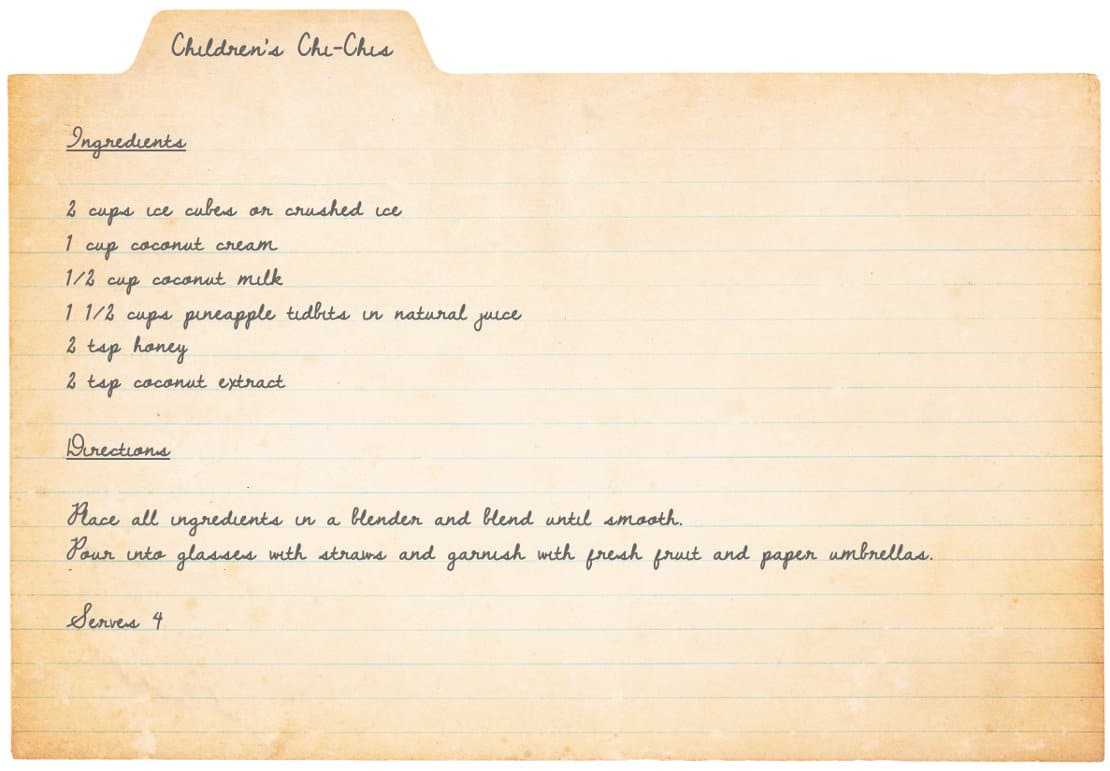 Children's Chi-Chis
Ingredients
2 cups ice cubes or crushed ice
1 cup coconut cream
1/2 cup coconut milk
1 1/2 cups pineapple tidbits in natural juice
2 tsp honey
2 tsp coconut extract
Directions
Place all ingredients in a blender and blend until smooth.
Pour into glasses with straws and garnish with fresh fruit and paper umbrellas.
Serves 4